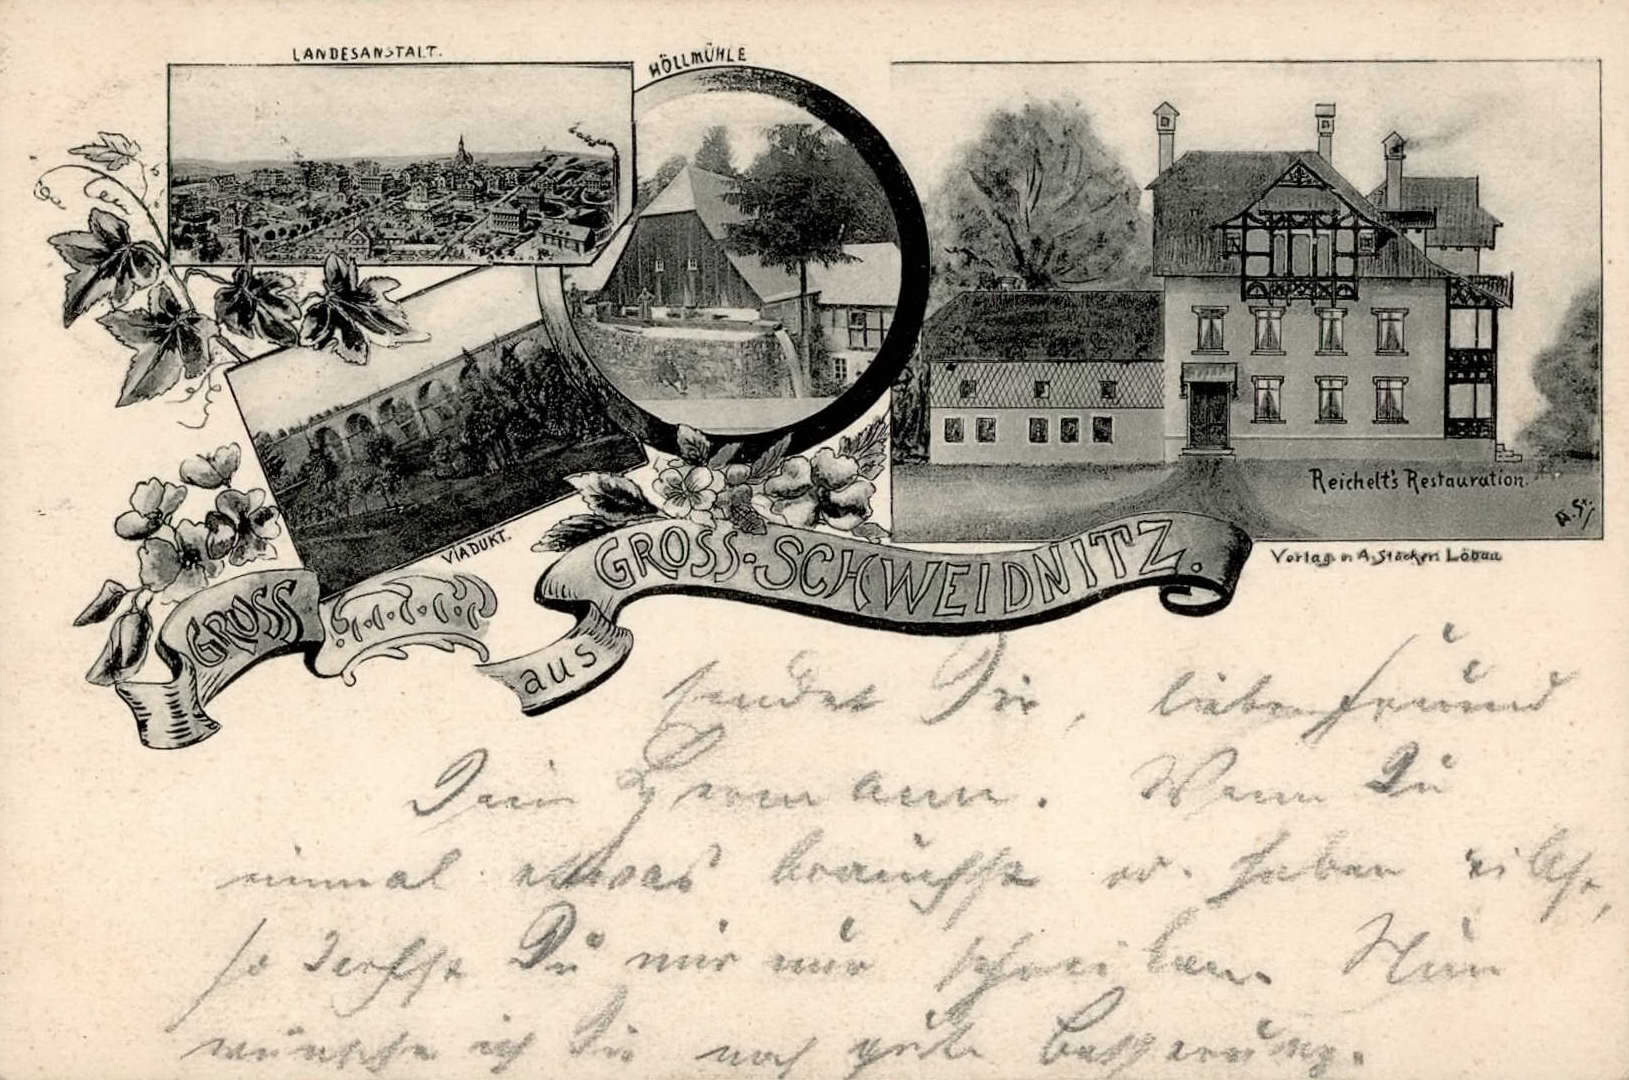 LANDESANSTALT.
HÖLLMÜHLE
VIADUKT.
Reichelt's Restauration.
Verlag v. A. Stöckert Löbau
GROSS
aus
GROSS-SCHWEIDNITZ.
sendet Dir, lieber Freund
Dein Hermann. Wenn Du
einmal etwas brauchst od. haben willst,
so derfst Du mir nur schreiben. Nun
wünsche ich Dir noch gute Besserung.